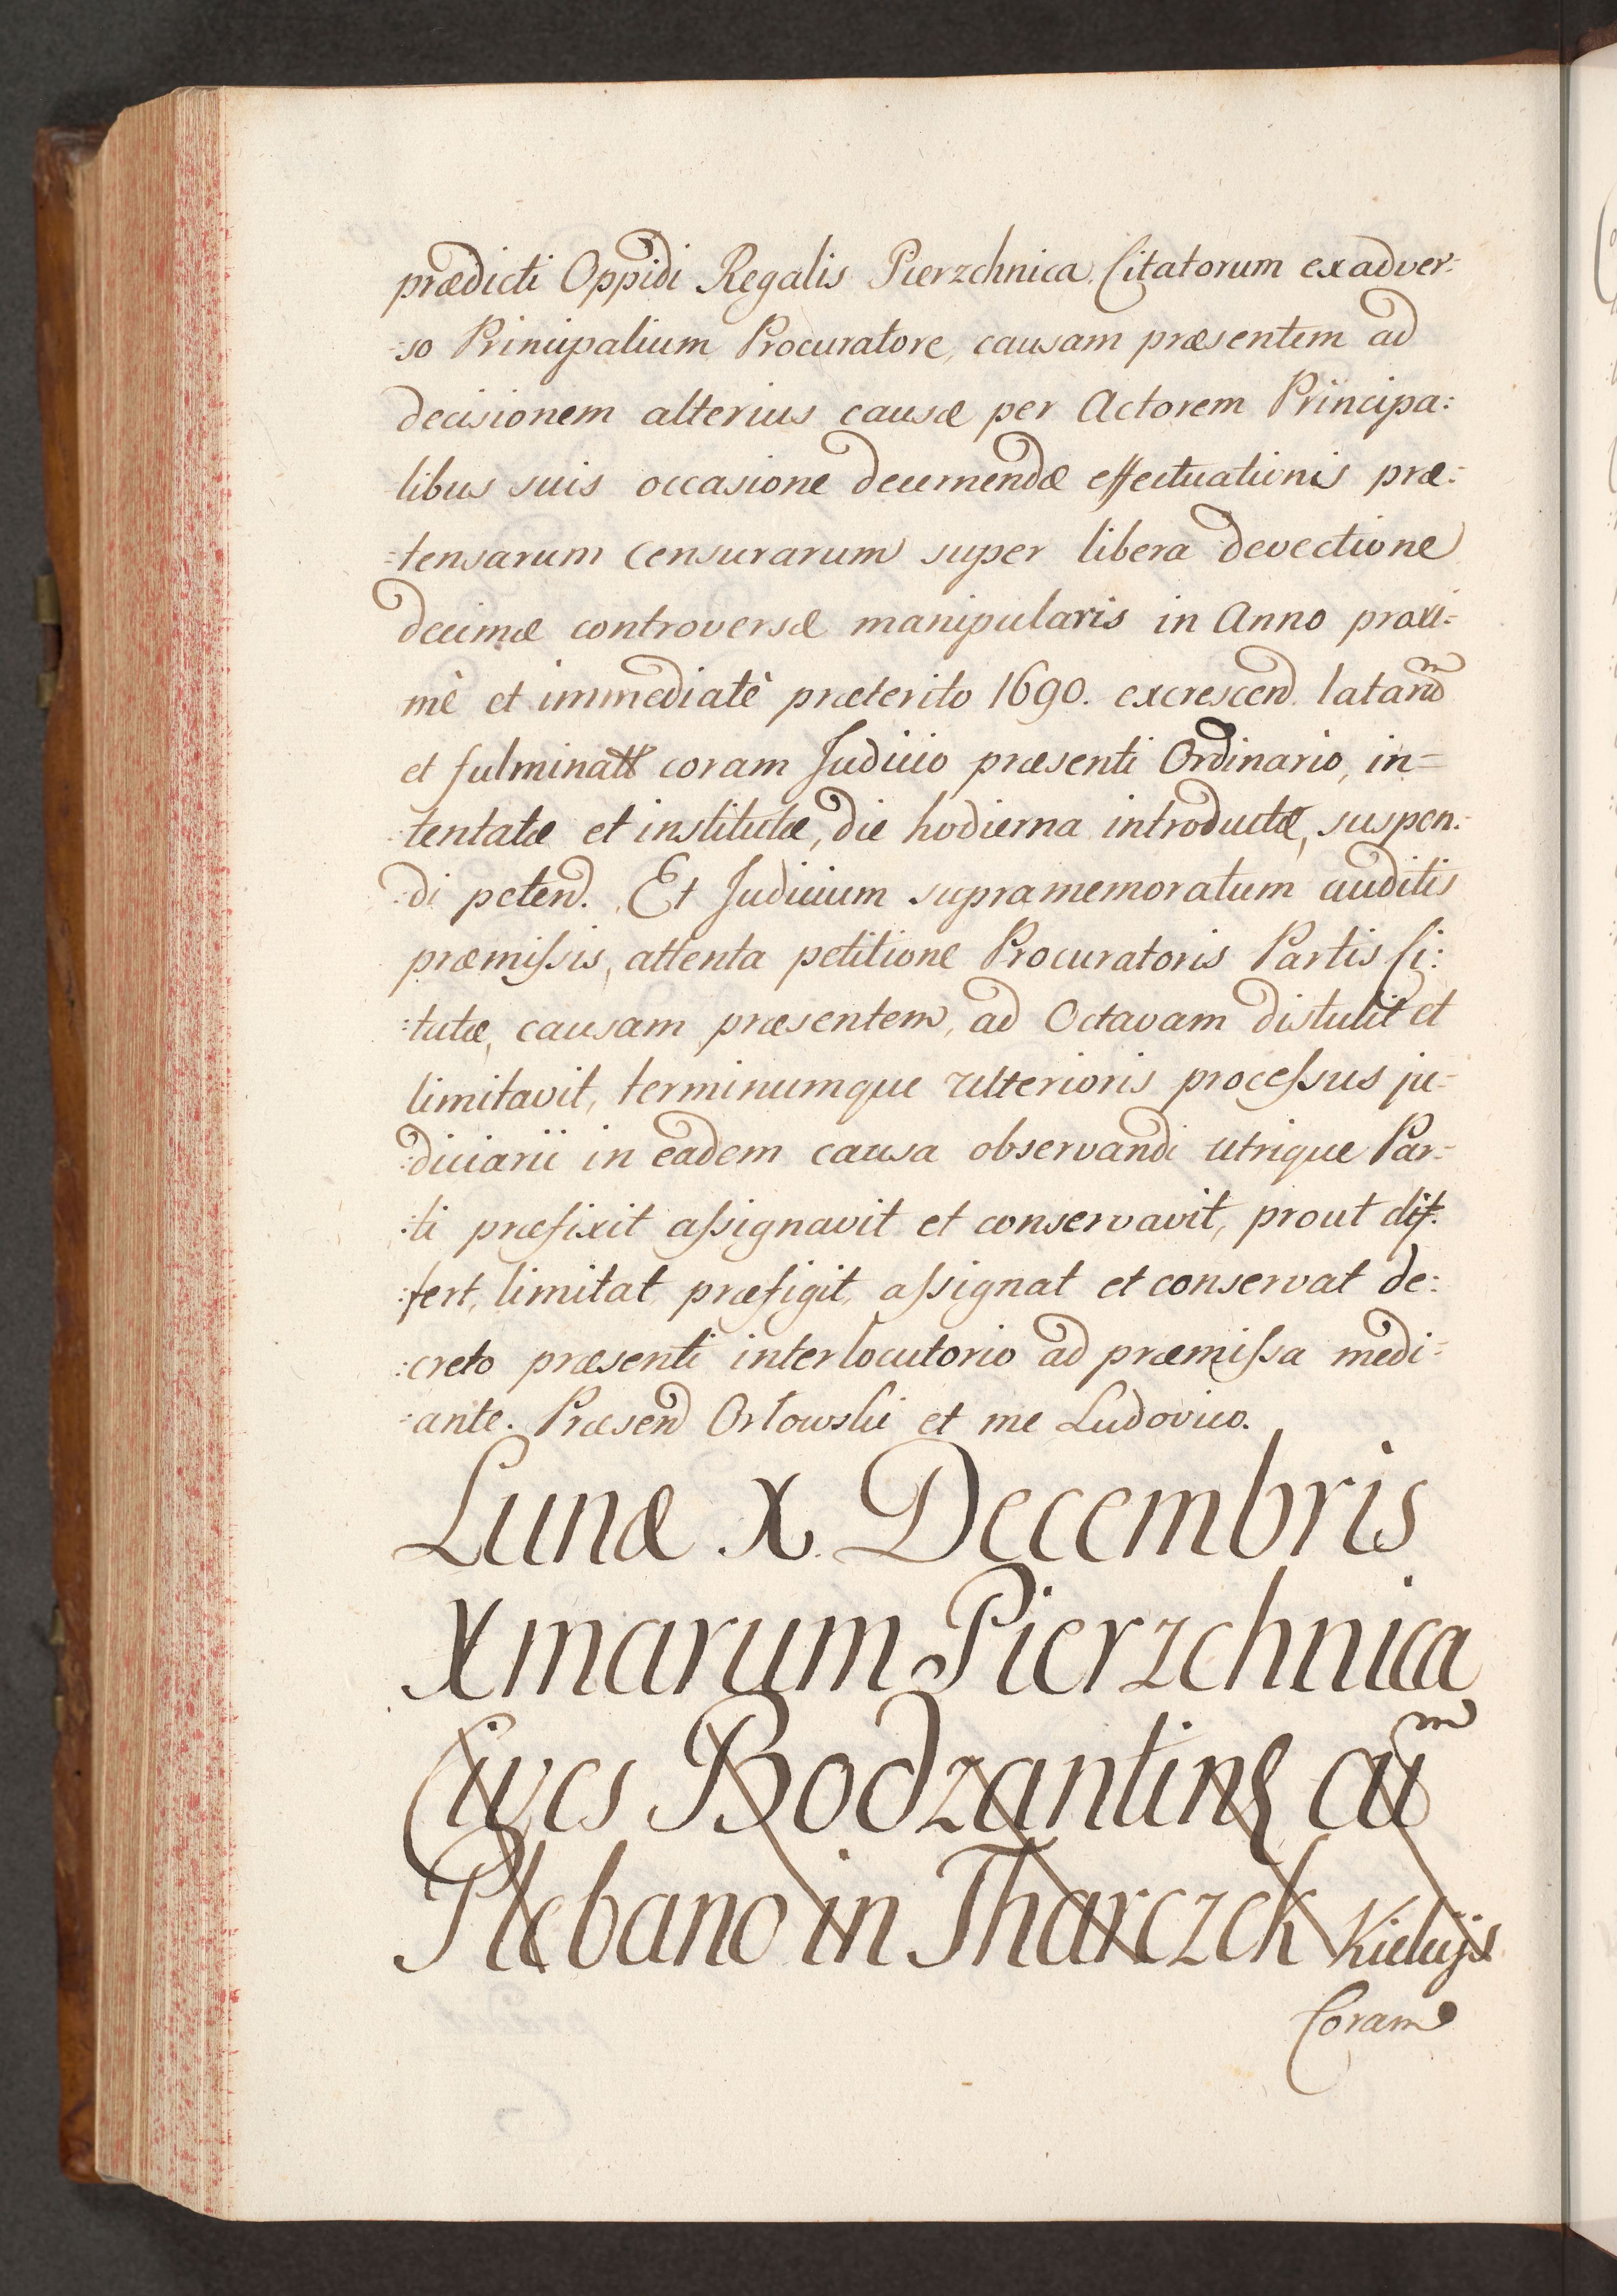 prædicti Oppidi Regalis Pierzchnica Citatorum exadver:
:so Principalium Procuratore, causam præsentem ad
decisionem alterius causæ per Actorem Principa:
libus suis occasione decernendæ effectuationis præ:
:tensarum Censurarum super libera devectione
decimæ controversæ manipularis in Anno proxi:
mè et immediatè præterito 1690. excrescend. latarũ
et fulminatt coram Judicio præsenti Ordinario, in=
:tentatæ et institutæ, die hodierna introductæ, suspen:
:di petend. Et Judicium supramemoratum auditis
præmissis, attenta petitione Procuratoris Partis Ci:
:tatæ, causam præsentem, ad Octavam distulit et
limitavit, terminumque ulterioris processus ju:
:diciarii in eadem causa observandi utrique Par:
:ti præfixit assignavit et conservavit, prout dif:
:fert, limitat præfigit, assignat et conservat de:
:creto præsenti interlocutorio ad præmissa medi:
:ante. Præsend Orłowski et me Ludovico.
Lunæ X. Decembris
Xmarum Pierzchnica
Cives Bodzantinẽ cũ
Plebano in Tharczek Kielcijs
Coram